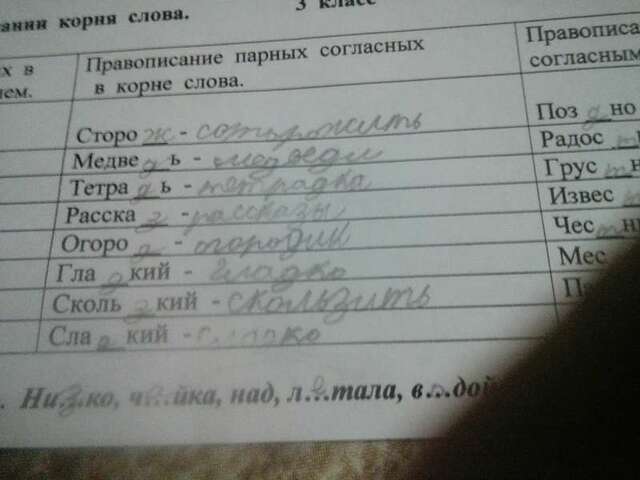 ании корня слова. 3 класс
х в Правописание парных согласных Правописа
ем. в корне слова. согласным
Сторо ж - сторожить Поз д но
Медве д ь - медведи Радос т
Тетра д ь - тетрадка Грус т н
Расска з - рассказы Извес т
Огоро д - огородик Чес т н
Гла д кий - гладко Мес
Сколь з кий - скользить
Сла д кий - сладко
Ни з ко, ч...йка, над, л...тала, в...дой